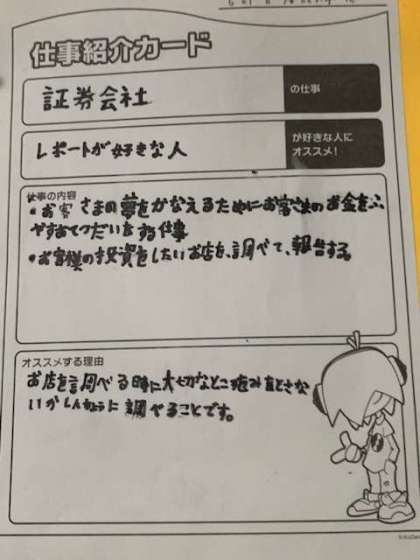 仕事紹介カード
証券会社
の仕事
レポートが好きな人
が好きな人に
オススメ!
仕事の内容
・お客さまの夢をかなえるためにお客さまのお金をふ
やすおてつだいをする仕事
・お客様の投資をしたいお店を、調べて、報告する。
オススメする理由
お店を調べる時に大切なとこ
いか しんちょうに調べることです。